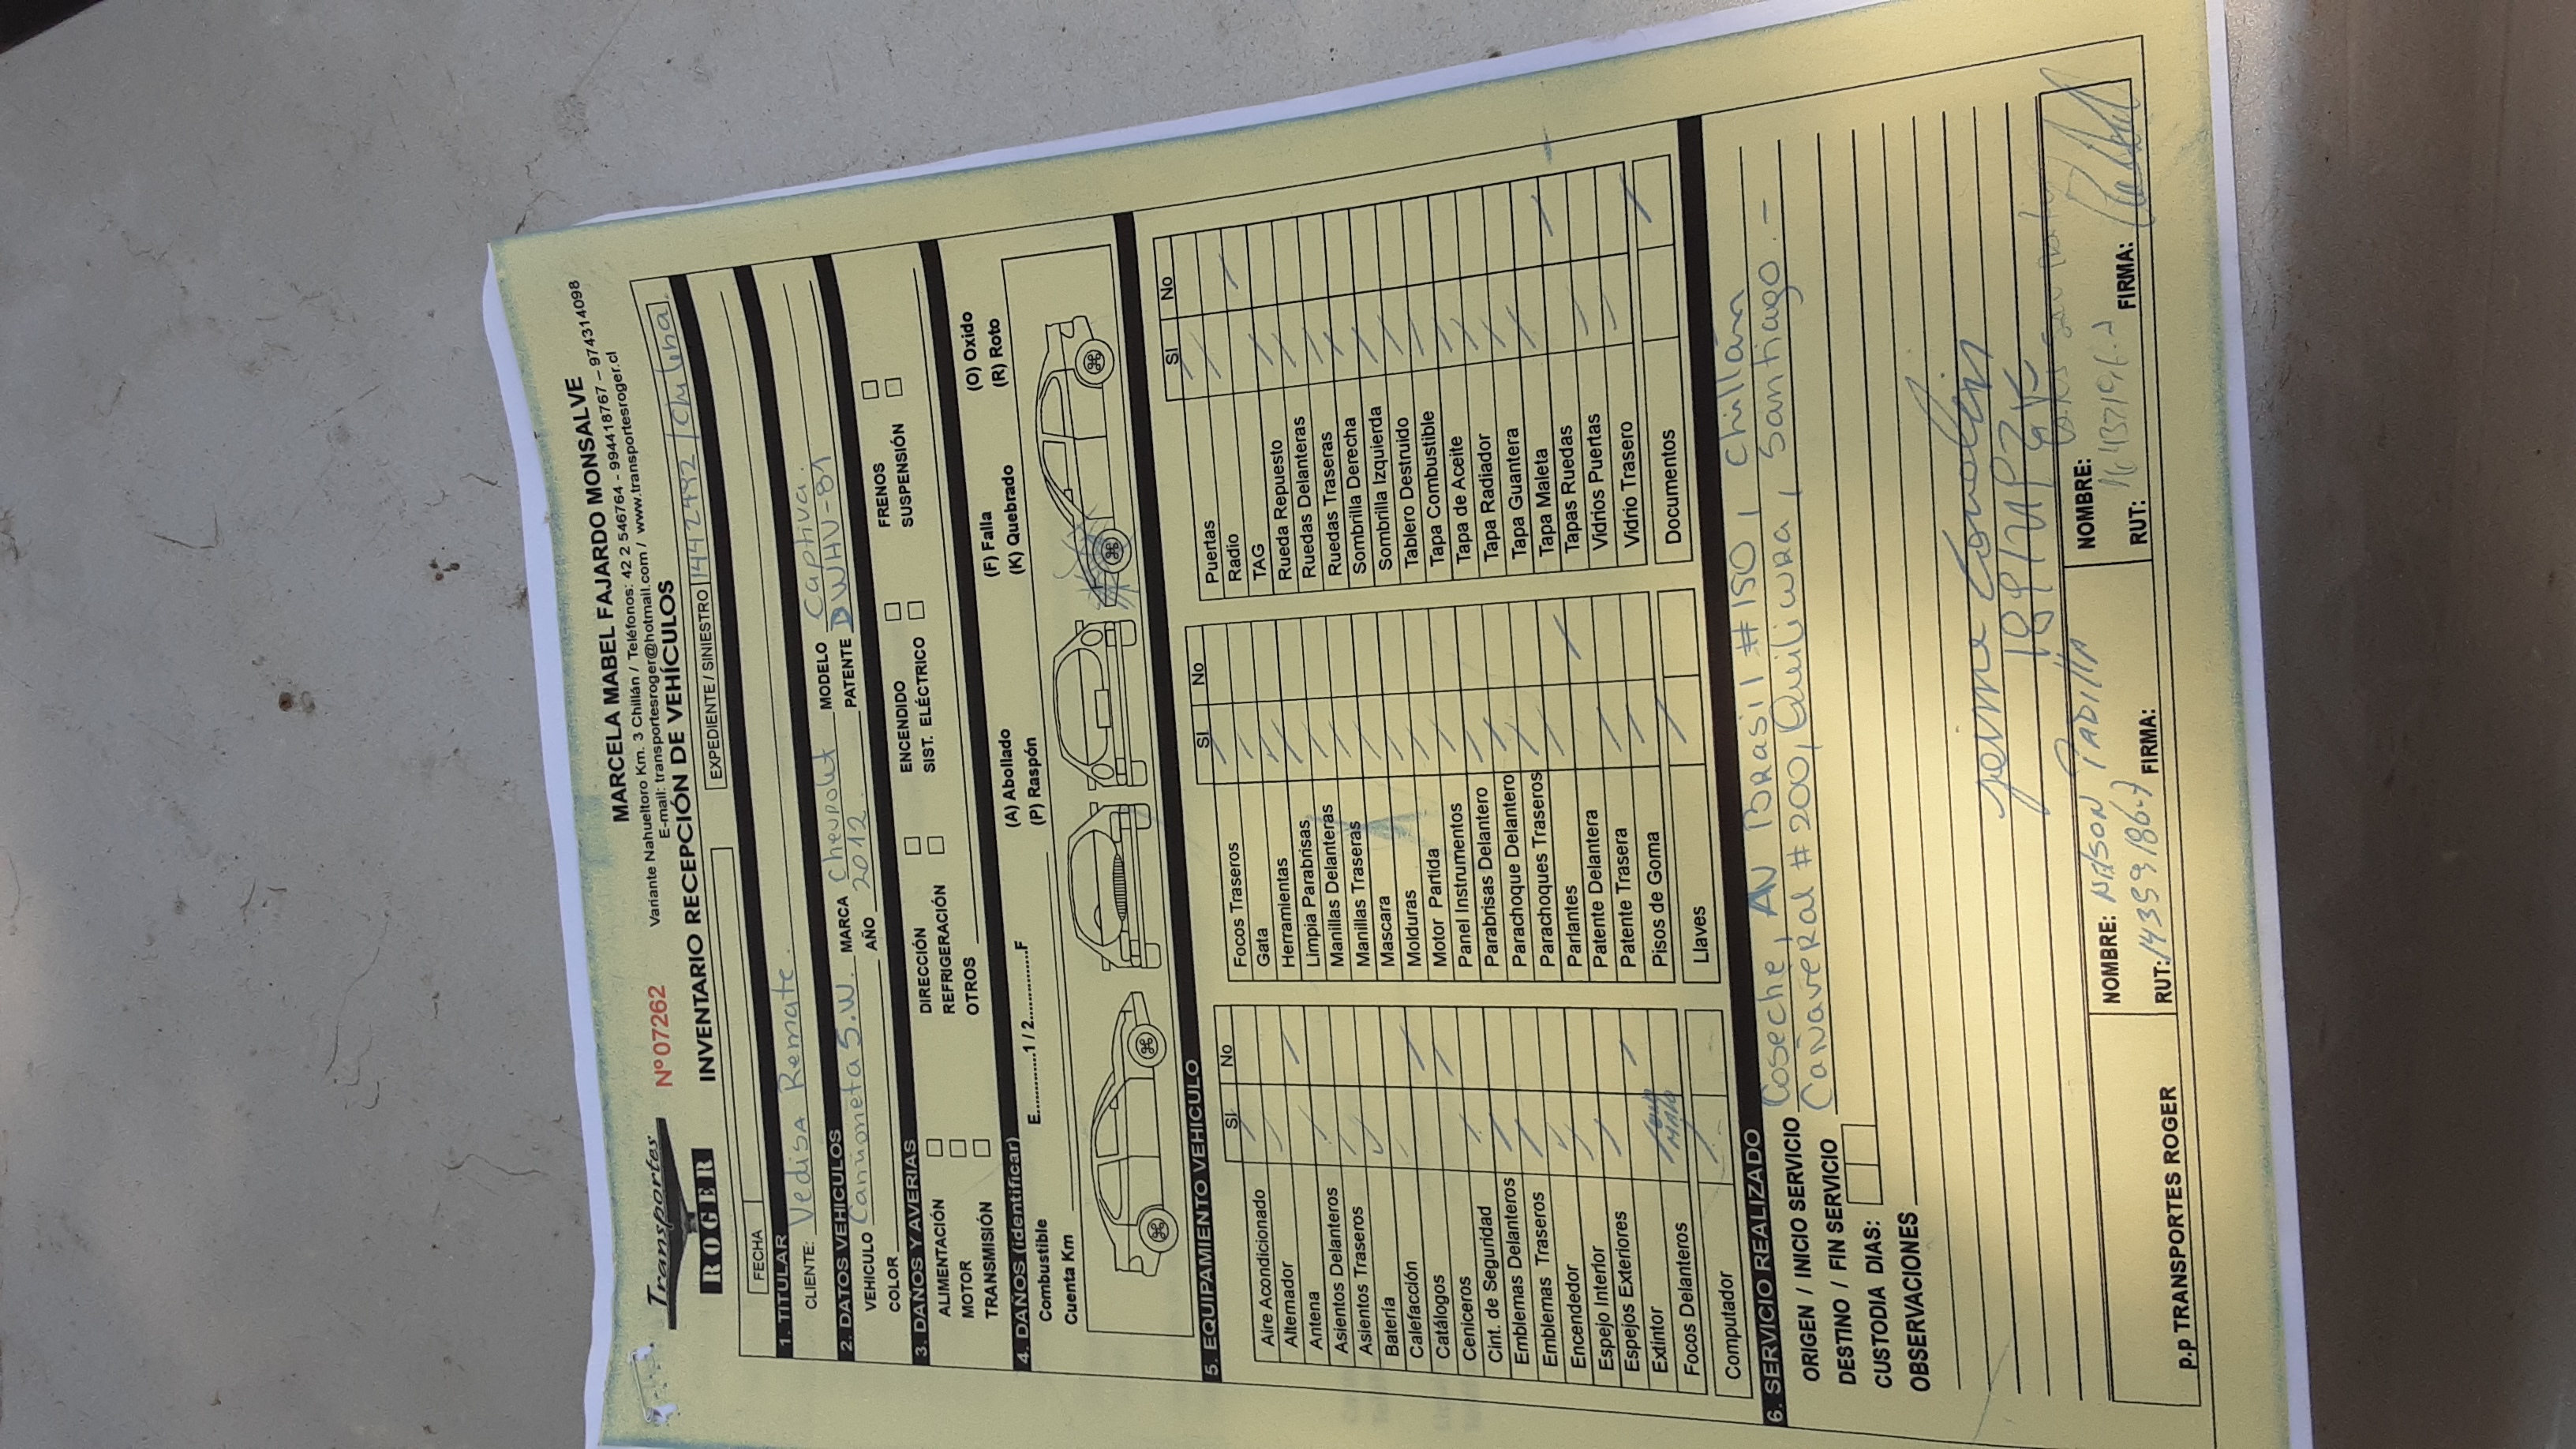 Transportes
ROGER
Nº 07262
MARCELA MABEL FAJARDO MONSALVE
Variante Nahueltoro Km. 3 Chillán / Teléfonos: 42 2 546764 - 994418767 – 974314098
E-mail: transportesroger@hotmail.com / www.transportesroger.cl
INVENTARIO RECEPCIÓN DE VEHÍCULOS
FECHA
EXPEDIENTE / SINIESTRO 14424492 / Chilena.
1. TITULAR
CLIENTE: Vedisa Remate.
2. DATOS VEHICULOS
VEHICULO Camioneta S.W. MARCA Chevrolet MODELO Captiva.
COLOR AÑO 2012. PATENTE DWHV-81
3. DAÑOS Y AVERIAS
ALIMENTACIÓN DIRECCIÓN ENCENDIDO FRENOS
MOTOR REFRIGERACIÓN SIST. ELÉCTRICO SUSPENSIÓN
TRANSMISIÓN OTROS
4. DAÑOS (identificar)
Combustible E............1 / 2............F (A) Abollado (F) Falla (O) Oxido
Cuenta Km (P) Raspón (K) Quebrado (R) Roto
5. EQUIPAMIENTO VEHICULO
SI No
Aire Acondicionado
Alternador
Antena
Asientos Delanteros
Asientos Traseros
Batería
Calefacción
Catálogos
Ceniceros
Cint. de Seguridad
Emblemas Delanteros
Emblemas Traseros
Encendedor
Espejo Interior
Espejos Exteriores
Extintor
Focos Delanteros
Computador
SI No
Focos Traseros
Gata
Herramientas
Limpia Parabrisas
Manillas Delanteras
Manillas Traseras
Mascara
Molduras
Motor Partida
Panel Instrumentos
Parabrisas Delantero
Parachoque Delantero
Parachoques Traseros
Parlantes
Patente Delantera
Patente Trasera
Pisos de Goma
Llaves
SI No
Puertas
Radio
TAG
Rueda Repuesto
Ruedas Delanteras
Ruedas Traseras
Sombrilla Derecha
Sombrilla Izquierda
Tablero Destruido
Tapa Combustible
Tapa de Aceite
Tapa Radiador
Tapa Guantera
Tapa Maleta
Tapas Ruedas
Vidrios Puertas
Vidrio Trasero
Documentos
6. SERVICIO REALIZADO
ORIGEN / INICIO SERVICIO Coseche, AV Brasil #150, Chillán
DESTINO / FIN SERVICIO Cañaveral #200, Quilicura, Santiago.-
CUSTODIA DIAS:
OBSERVACIONES
p.p TRANSPORTES ROGER
NOMBRE: NELSON PADILLA
RUT: 14359186-7 FIRMA:
NOMBRE:
RUT: FIRMA: